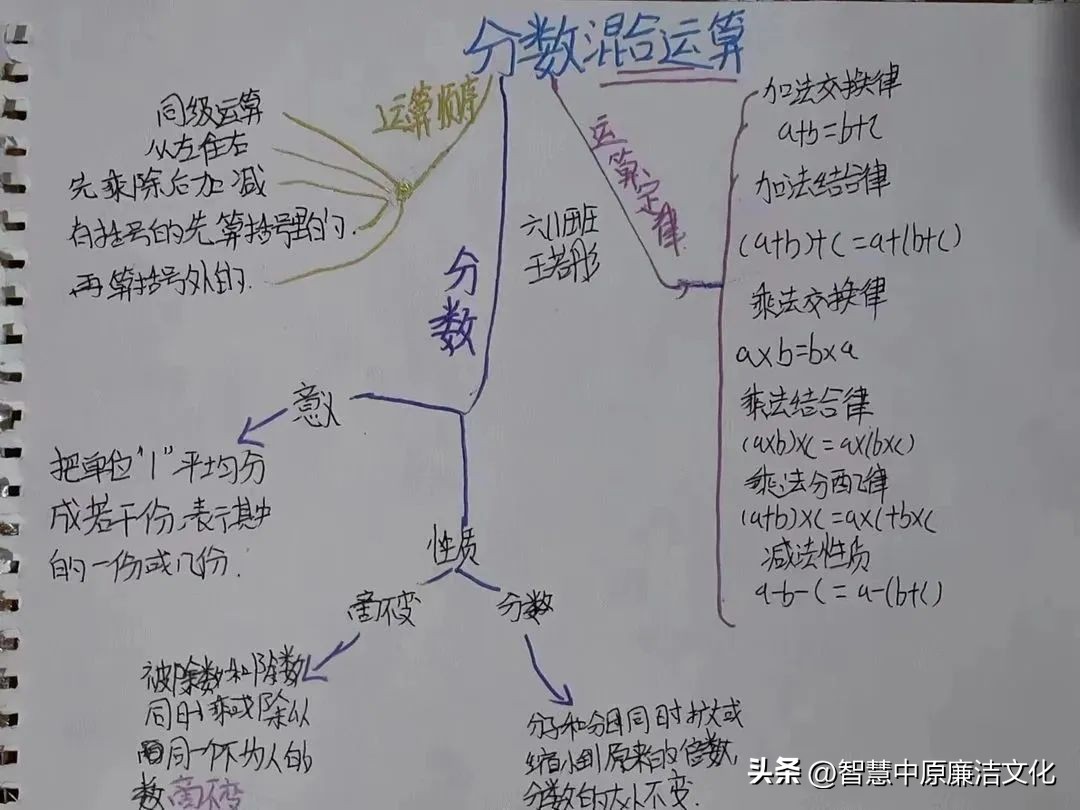 分数混合运算
运算顺序
同级运算
从左往右
先乘除后加减
有括号的先算括号里的.
再算括号外的.
运算定律
加法交换律
a+b=b+z
加法结合律
(a+b)+c=a+(b+c)
乘法交换律
a×b=b×a
乘法结合律
(a×b)×c=a×(b×c)
乘法分配律
(a+b)×c=a×c+b×c
减法性质
a-b-c=a-(b+c)
六川班
王若彤
分数
意义
把单位"1"平均分
成若干份,表示其中
的一份或几份.
性质
商不变
被除数和除数
同时乘或除以
同一个不为0的
数,商不变
分数
分子和分母同时扩大或
缩小到原来的倍数,
分数的大小不变.
头条 @智慧中原廉洁文化